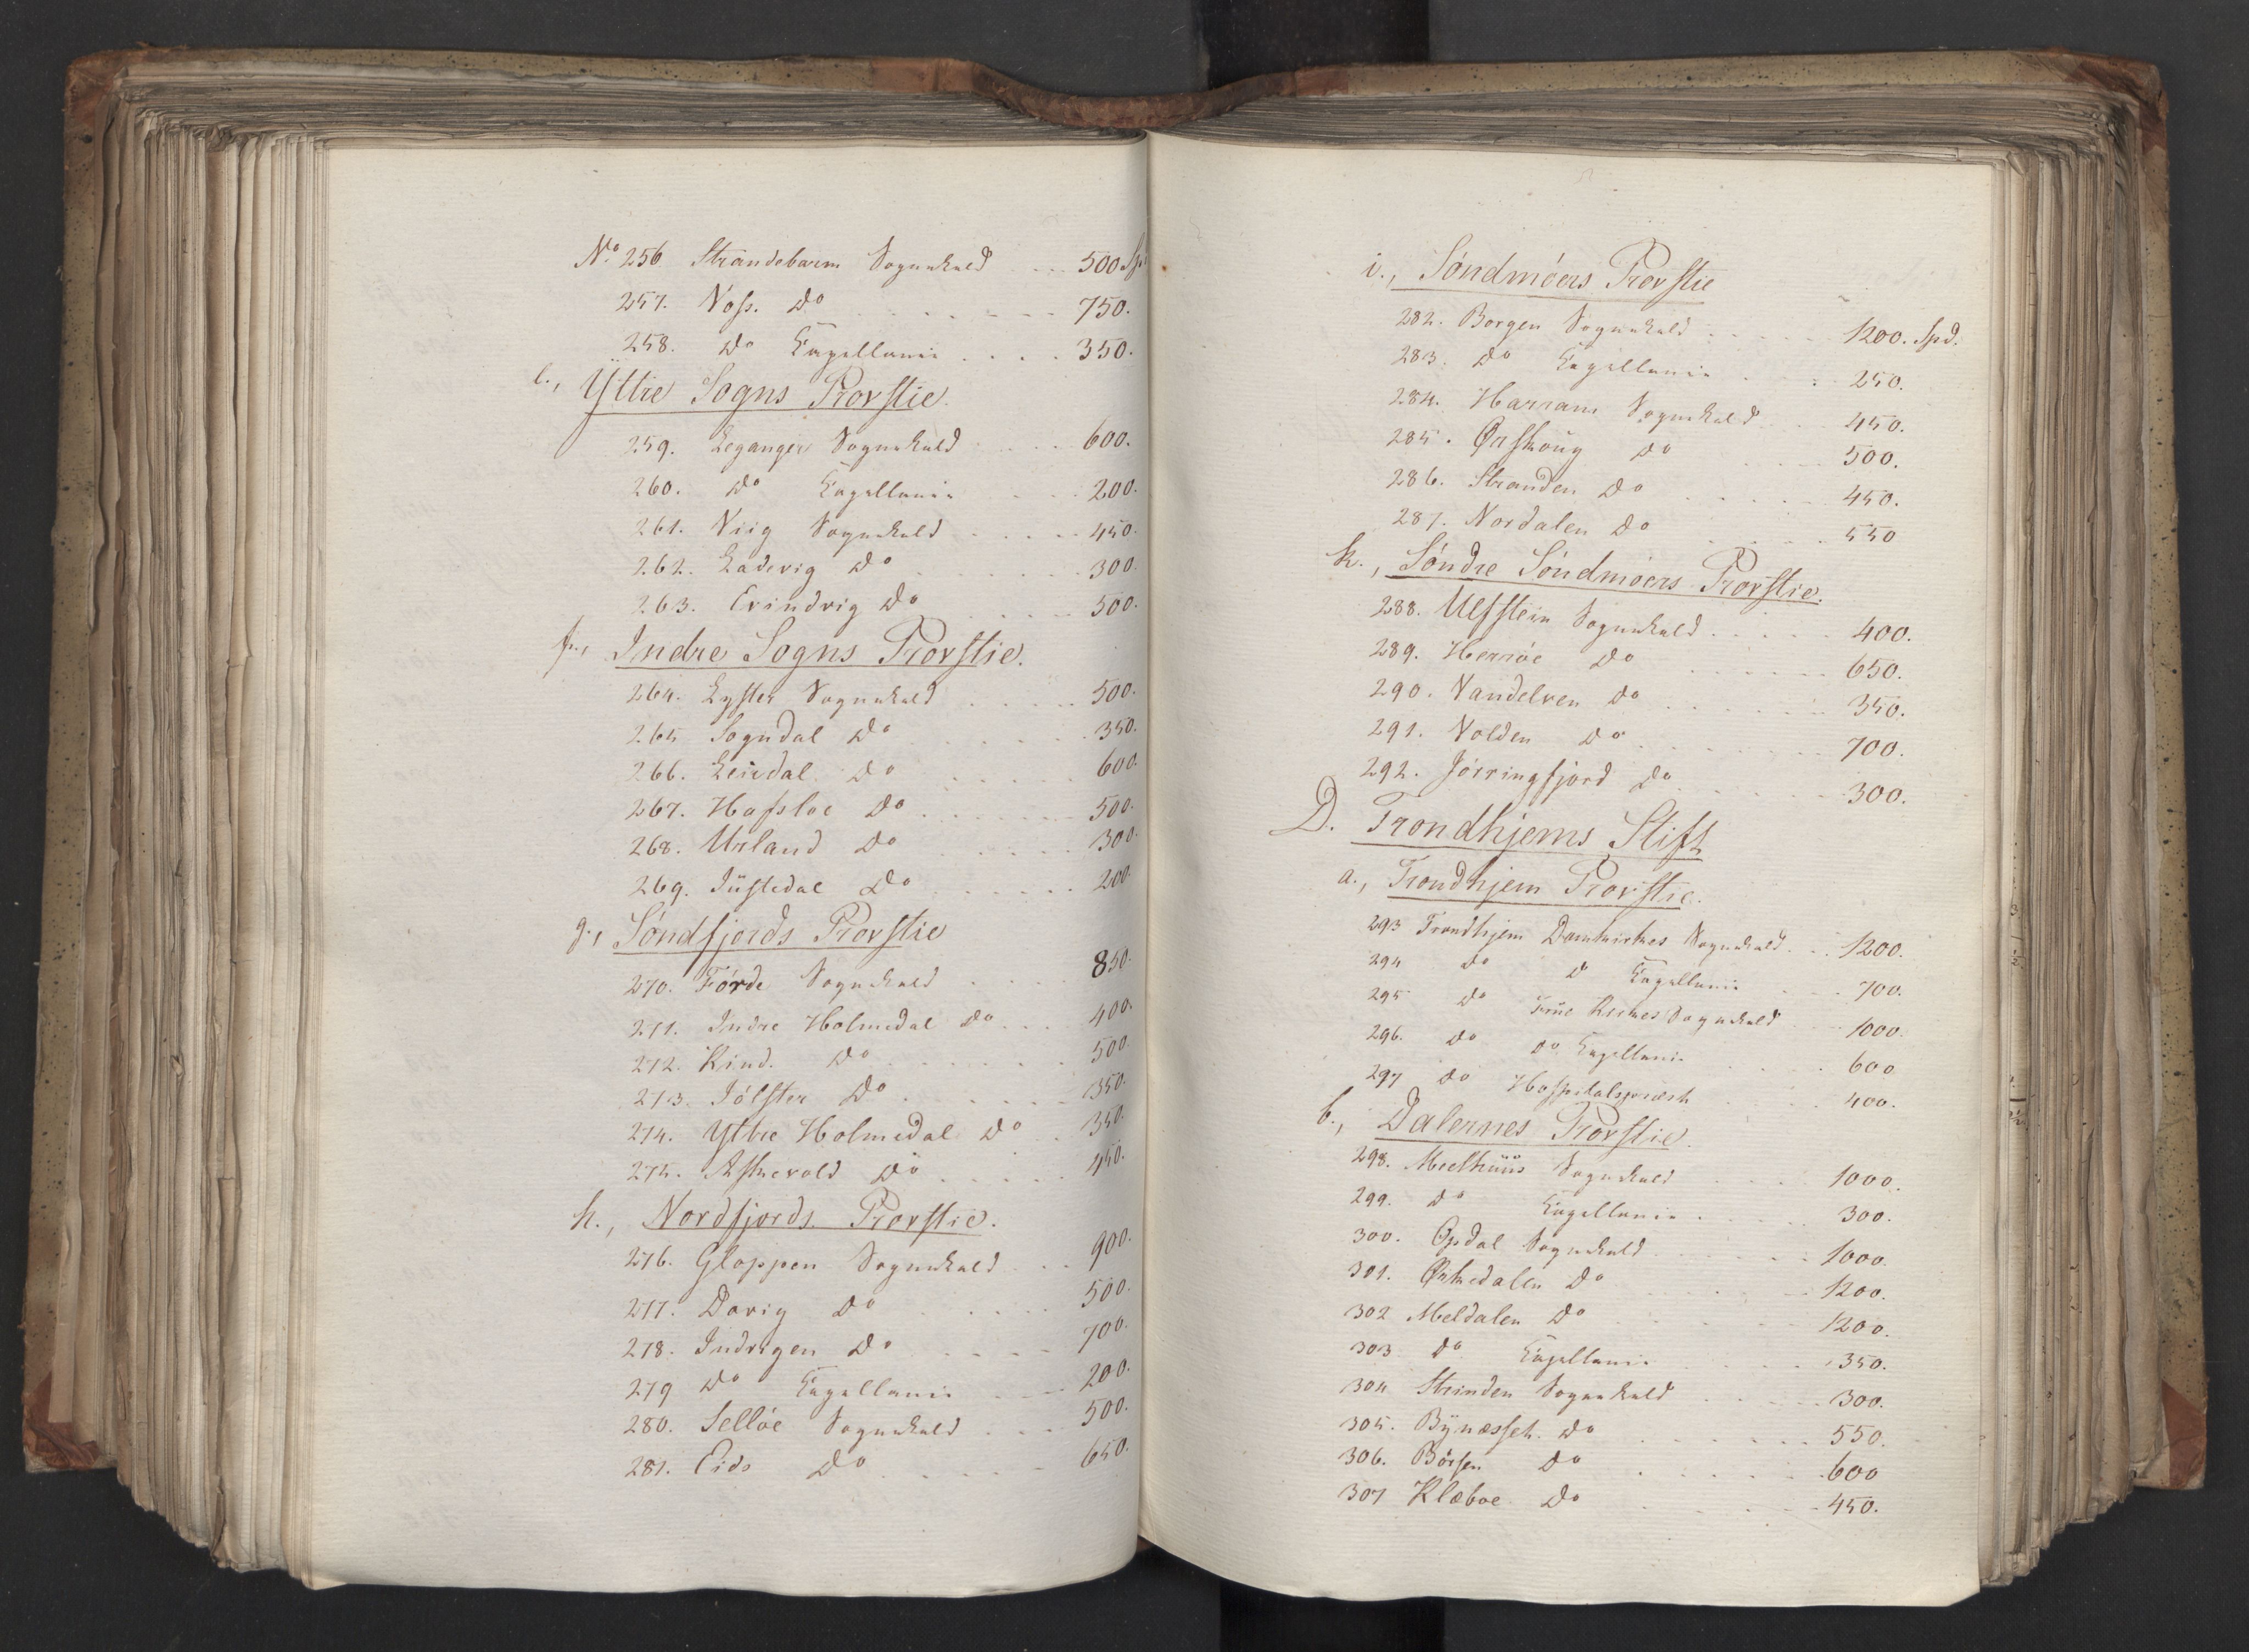 No 256 Strandebarm Sognekald . . . 500 Spd
257. Voss. Do . . . . . . . . 750.
258. Do Capellanie . . . . 350.
e., Yttre Sogns Provstie.
259. Leganger Sognekald . . . . 600.
260. Do Capellanie . . . 200.
261. Viig Sognekald . . . . . 450.
262. Ladevig Do . . . . . . 300.
263. Evindvig Do . . . . . 500.
f., Indre Sogns Provstie.
264. Lyster Sognekald . . . . . 500.
265 Sogndal Do . . . . . . 350.
266. Leirdal Do . . . . . 600.
267. Hafsloe Do . . . . . . . 500.
268. Urland Do . . . . . 300.
269. Jüstedal Do . . . . . . 200.
g., Søndfjords Provstie
270. Førde Sognekald . . . . 850.
271. Indre Holmedal Do . . . 400.
272. Kind. Do . . . . . . . 500.
273. Jølster Do . . . . . . 350.
274. Yttre Holmedal Do . . 350.
275. Askevold Do . . . . . 450.
h., Nordfjords Provstie.
276. Gloppen Sognekald . . . 900.
277. Davig Do . . . . . 500.
278. Indvigen Do . . . . . 700.
279 Do Capellanie . . . . 200.
280. Selløe Sognekald . . . 500.
281. Eids Do . . . . . . 650.
i., Søndmøers Provstie
282. Borgen Sognekald . . . . . 1200. Spd.
283. Do Capellanie . . . 250.
284. Harrams Sognekald . . . 450.
285. Ørskoug Do . . . . 500.
286. Stranden Do . . . . . 450.
287. Nordalen Do . . . . . 550
k., Søndre Søndmøers Provstie.
288. Ulfstein Sognekald . . . . . 400.
289. Herrøe Do . . . . . . . 650.
290. Vandelven Do . . . . . . . 350.
291. Volden Do . . . . . . . . 700.
292. Jørringfjord Do . . . . . . 300.
D. Trondhjems Stift
a., Trondhjem Provstie.
293 Trondhjem Domkirkes Sognekald . . . 1200.
294 Do Do Capellanie . . . 700.
295 Do Frue Kirkes Sognekald . . . 1000.
296. Do Do Capellanie . . . . . 600
297 Do Hospitalspræst . . . . 400.
b., Dalernes Provstie.
298. Meelhuus Sognekald . . . . 1000.
299. Do Capellanie . . . . . 300.
300. Opdal Sognekald . . . . . . 1000.
301. Ørkedalen Do . . . . . . 1200.
302 Meldalen Do . . . . . . 1200.
303 Do Capellanie . . . . . 350.
304 Strinden Sognekald . . . . . . 300.
305. Bynæsset. Do . . . . . . . 550.
306. Børsen Do . . . . . . . 600
307 Klæboe Do . . . . . . . 450.